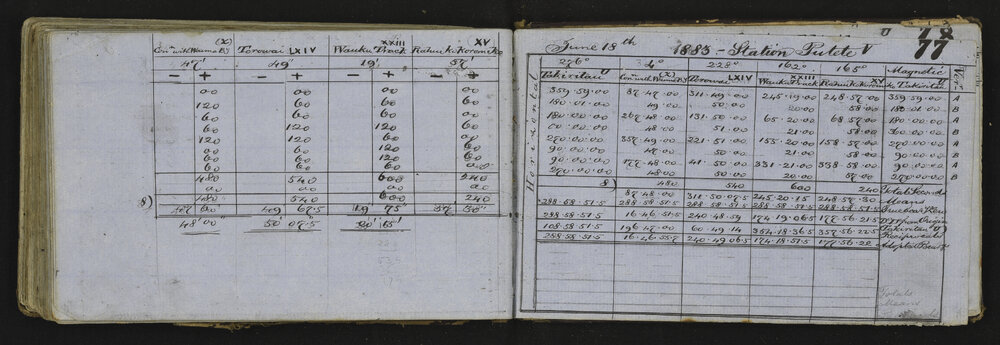 (X) XXIII XV
Con. with Waima Bdy Torowai LXIV Wauku Track Rahui K. Koroni Ko
47' 49' 19' 57'
− + − + − + − +
00 00 00 00
120 60 60 60
60 60 60 60
60 120 120 60
120 120 60 00
60 60 60 60
60 60 60 60
60 60 60 00
480 540 600 240
00 00 00 00
8) 480 540 600 240
47 60 49 67.5 19 75" 57 30"
48' 00" 50' 07.5" 20' 15"
77
June 18th 1883 – Station Putete V
276° 34° 228° 162° 165° Magnetic
Horizontal
Takiritau U Con. with Waima Bdy (X) Torowai LXIV Wauku Track XXIII Rahui K. Koroni Ko XV Takiritau U
359.59.00 87.47.00 311.49.00 245.19.00 248.57.00 359.59.00 A
180.01.00 49.00 50.00 20.00 58.00 180.01.00 B
180.00.00 267.48.00 131.50.00 65.20.00 68.57.00 180.00.00 A
00.00.00 48.00 51.00 21.00 58.00 360.00.00 B
270.00.00 357.49.00 221.51.00 155.20.00 158.57.00 270.00.00 A
90.00.00 48.00 50.00 21.00 58.00 90.00.00 B
90.00.00 177.48.00 41.50.00 331.21.00 338.58.00 90.00.00 A
270.00.00 48.00 50.00 20.00 57.00 270.00.00 B
8) 480 540 600 240 Total Seconds
87.48.00 311.50.07.5 245.20.15 248.57.30 Means
288.58.51.5 288.58.51.5 288.58.51.5 288.58.51.5 288.58.51.5
288.58.51.5 16.46.51.5 240.48.59 174.19.06.5 177.56.21.5 Origin
108.58.51.5 196.47.00 60.49.14 354.18.36.5 357.56.22.5 Reciprocals
288.58.51.5 16.46.55.7 240.49.06.5 174.18.51.5 177.56.22 Adopted Bear.
Totals
Means